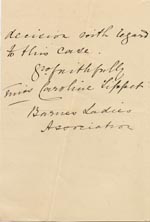 decision with regard
to this case.
Yrs faithfully
Miss Caroline Tippet
Barnes Ladies
Association